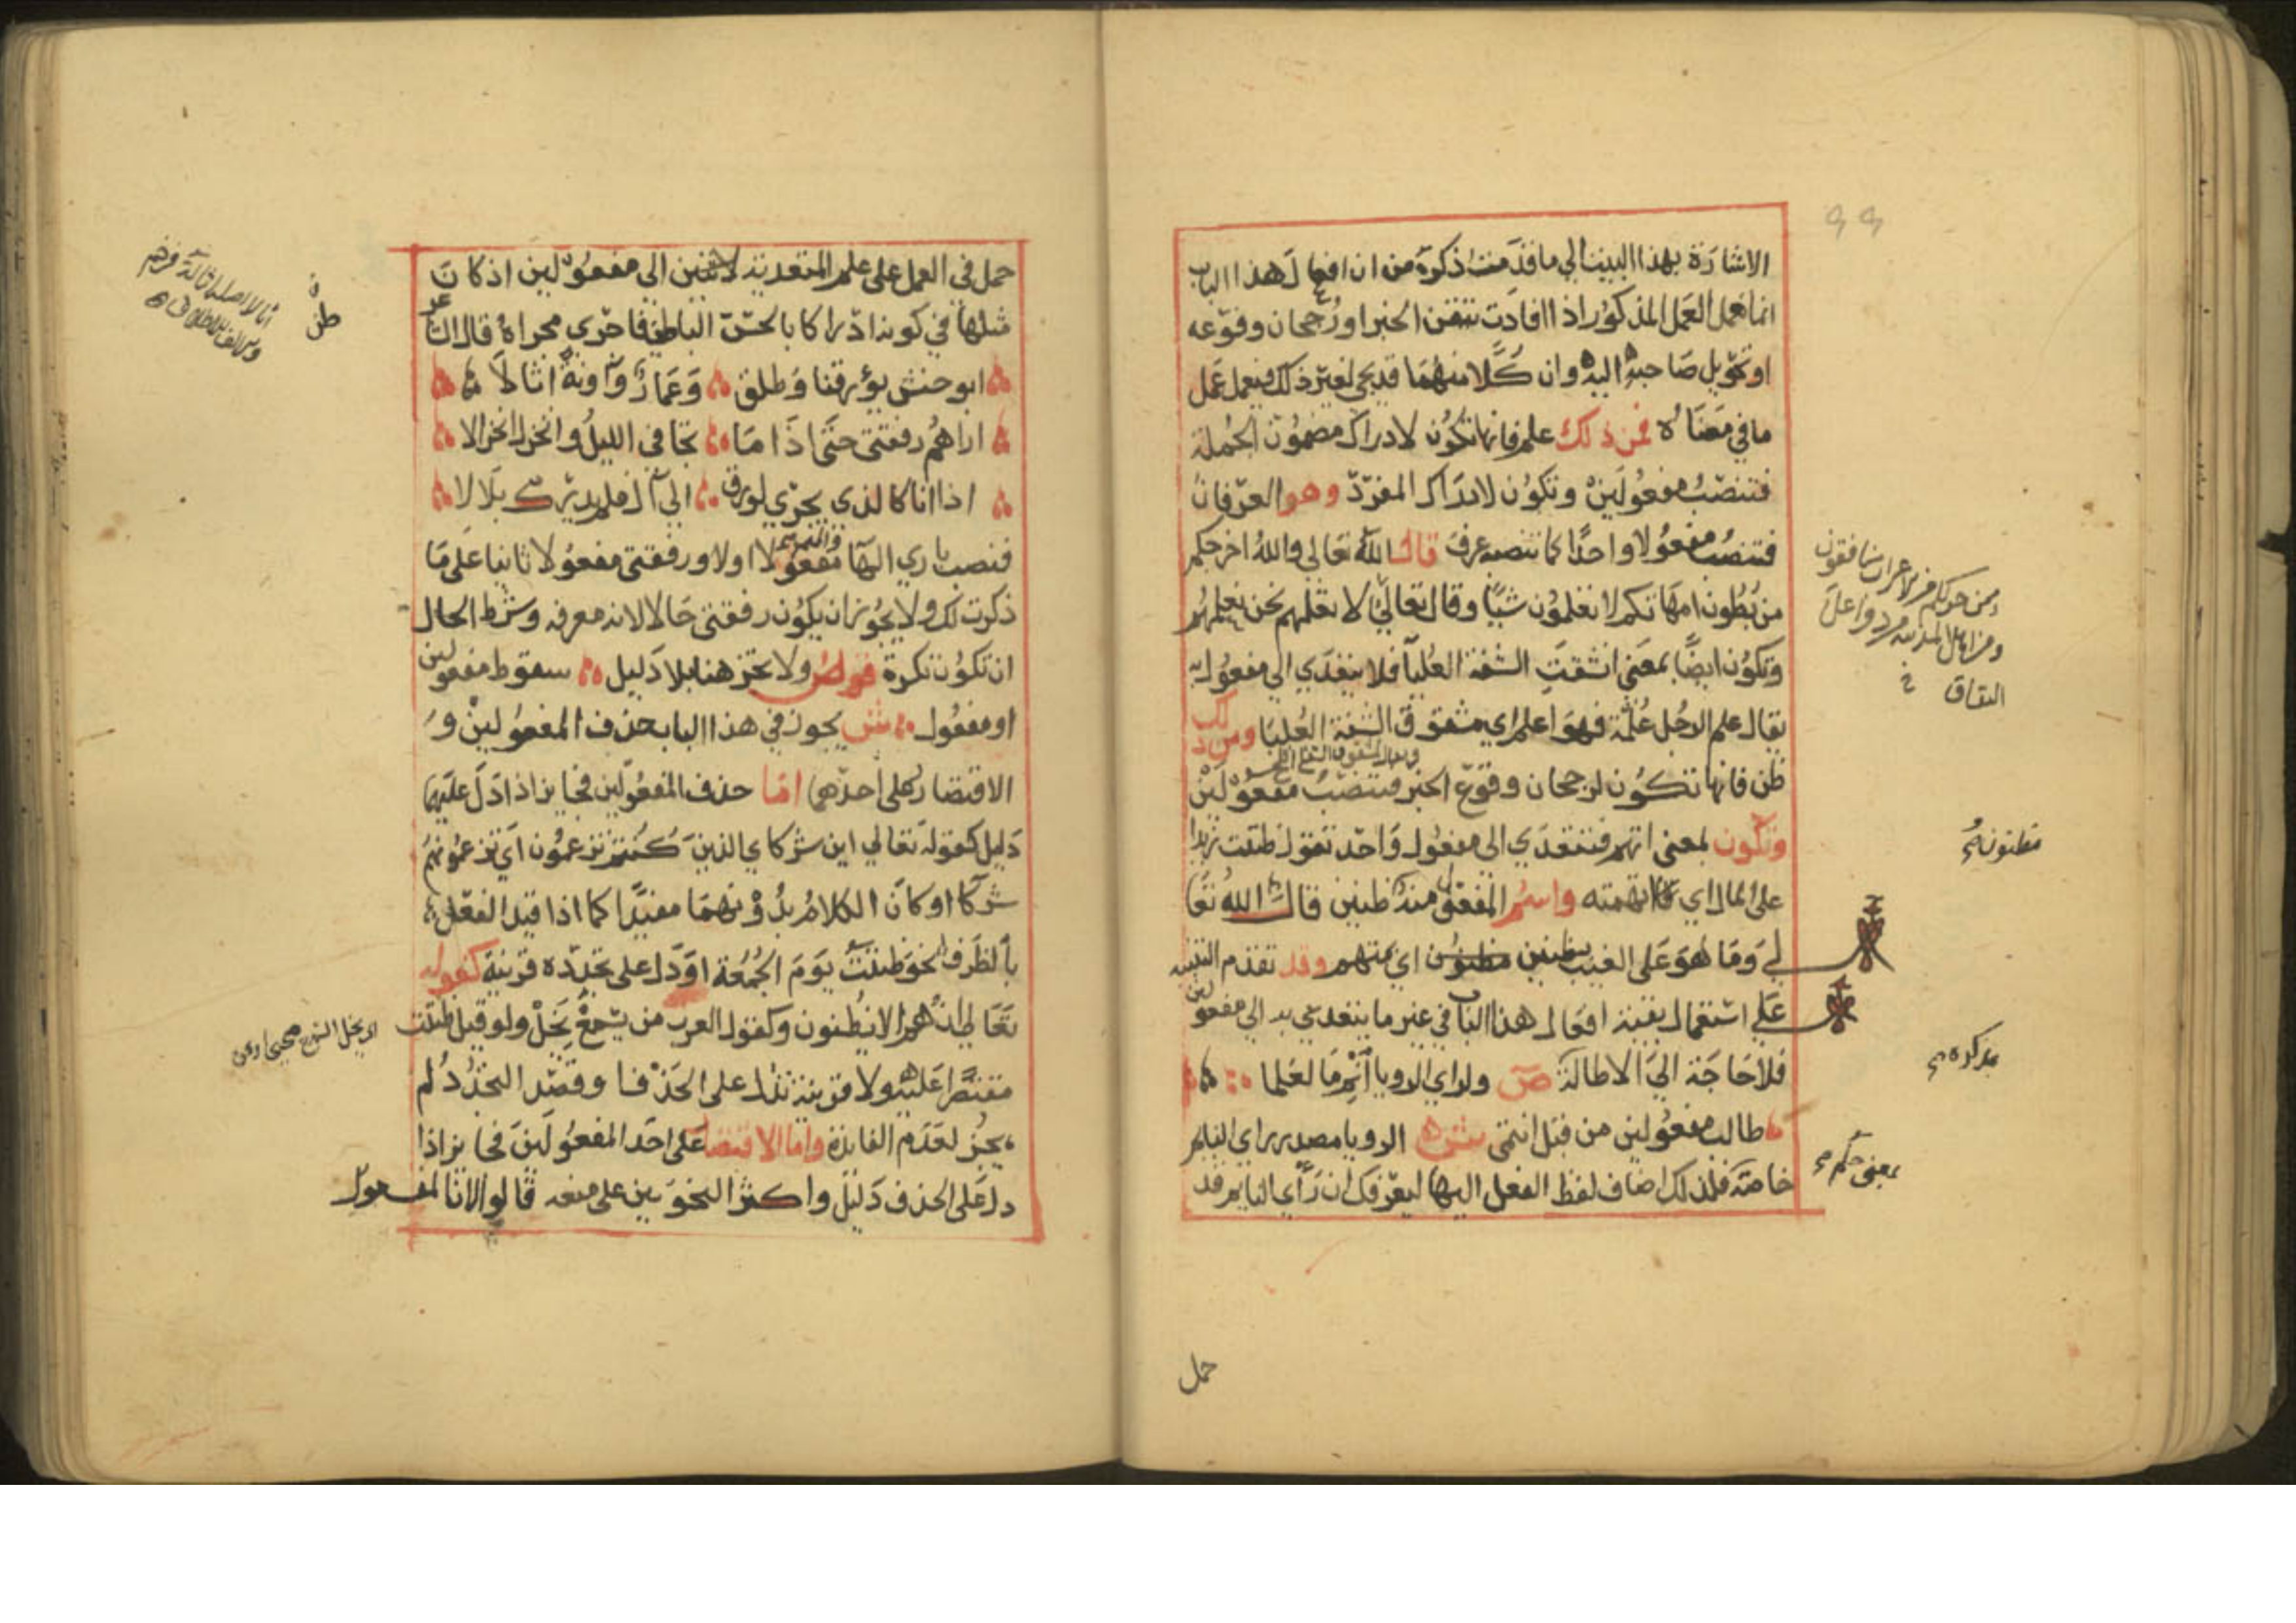 ٩٩
الاشارة بهذا البيت الي ما قدمت ذكره من ان افعال هذا الباب
انما تعمل العمل المذكور اذا افادت تيقن الخبر او رجحان وقوعه
او تحويل صاحبه اليه وان كلا منهما قد يجي لغير ذلك فيعمل عمل
ما في معناه فمن ذلك علم فانها تكون لادراك مضمون الجملة
فتنصب مفعولين وتكون لادراك المفرد وهو العرفان
فتنصب مفعولا واحدا كما تنصبه عرف قال الله تعالي والله اخرجكم
من بطون امهاتكم لا تعلمون شيا وقال تعالي لا تعلمهم نحن نعلمهم
وتكون ايضا بمعني انشقت الشفة العليا فلا يتعدي الي مفعول به
يقال علم الرجل علمة فهو اعلم اي مشقوق الشفة العليا ومن ذلك
ظن فانها تكون لرجحان وقوع الخبر فتنصب مفعولين
وتكون بمعني اتهم فتتعدي الي مفعول واحد تقول ظننت زيدا
علي المال اي اتهمته واسم المفعول منه ظنين قال الله تعا
لي وما هو علي الغيب بظنين اي بمتهم وقد تقدم التنبيه
علي استعمال بقية افعال هذا الباب في غير ما يتعدي به الي مفعولين
فلا حاجة الي الاطالة ص ولراي الرويا انم ما لعلما
طالب مفعولين من قبل انتمي ش الرويا مصدر راي النايم
خاصة فلذلك اضاف لفظ الفعل اليها ليعرفك ان راي النايم قد
وممن حولكم من الاعراب منافقون
ومن اهل المدينة مردوا علي
النفاق
مظنونه
بمعني حكم
حمل
حمل في العمل علي علم المتعدية لاثنين الي مفعولين اذ كان
مثلها في كونه ادراكا بالحس الباطن فاجري مجراه قال الشاعر
ابو حنش يؤرقنا وطلق وعمار وآونة اثالا
اراهم رفقتي حتي اذا ما تجافي الليل وانخزل انخزالا
اذا انا كالذي يجري لورد الي آل فلم يدرك بلالا
فنصب باري الها مفعولا اولا ورفقتي مفعولا ثانيا علي ما
ذكرت لك ولا يجوز ان يكون رفقتي حالا لانه معرفه وشرط الحال
ان تكون نكرة ص ولا تجز هنا بلا دليل سقوط مفعولين
او مفعول ش يجوز في هذا الباب حذف المفعولين و
الاقتصار علي احدهما اما حذف المفعولين فجايز اذا دل عليهما
دليل كقوله تعالي اين شركاي الذين كنتم تزعمون اي تزعمونهم
شركا او كان الكلام بدونهما مفيدا كما اذا قيد الفعل
بالظرف نحو ظننت يوم الجمعة او دل علي تجدده قرينة كقوله
تعالي ان هم الا يظنون وكقول العرب من يسمع يخل ولو قيل ظننت
مقتصرا عليه ولا قرينة تدل علي الحذف او قصد التجدد لم
يجز لعدم الفايدة واما الاقتصار علي احد المفعولين فجايز اذا
دل علي الحذف دليل واكثر النحويين علي منعه قالوا لان المفعول